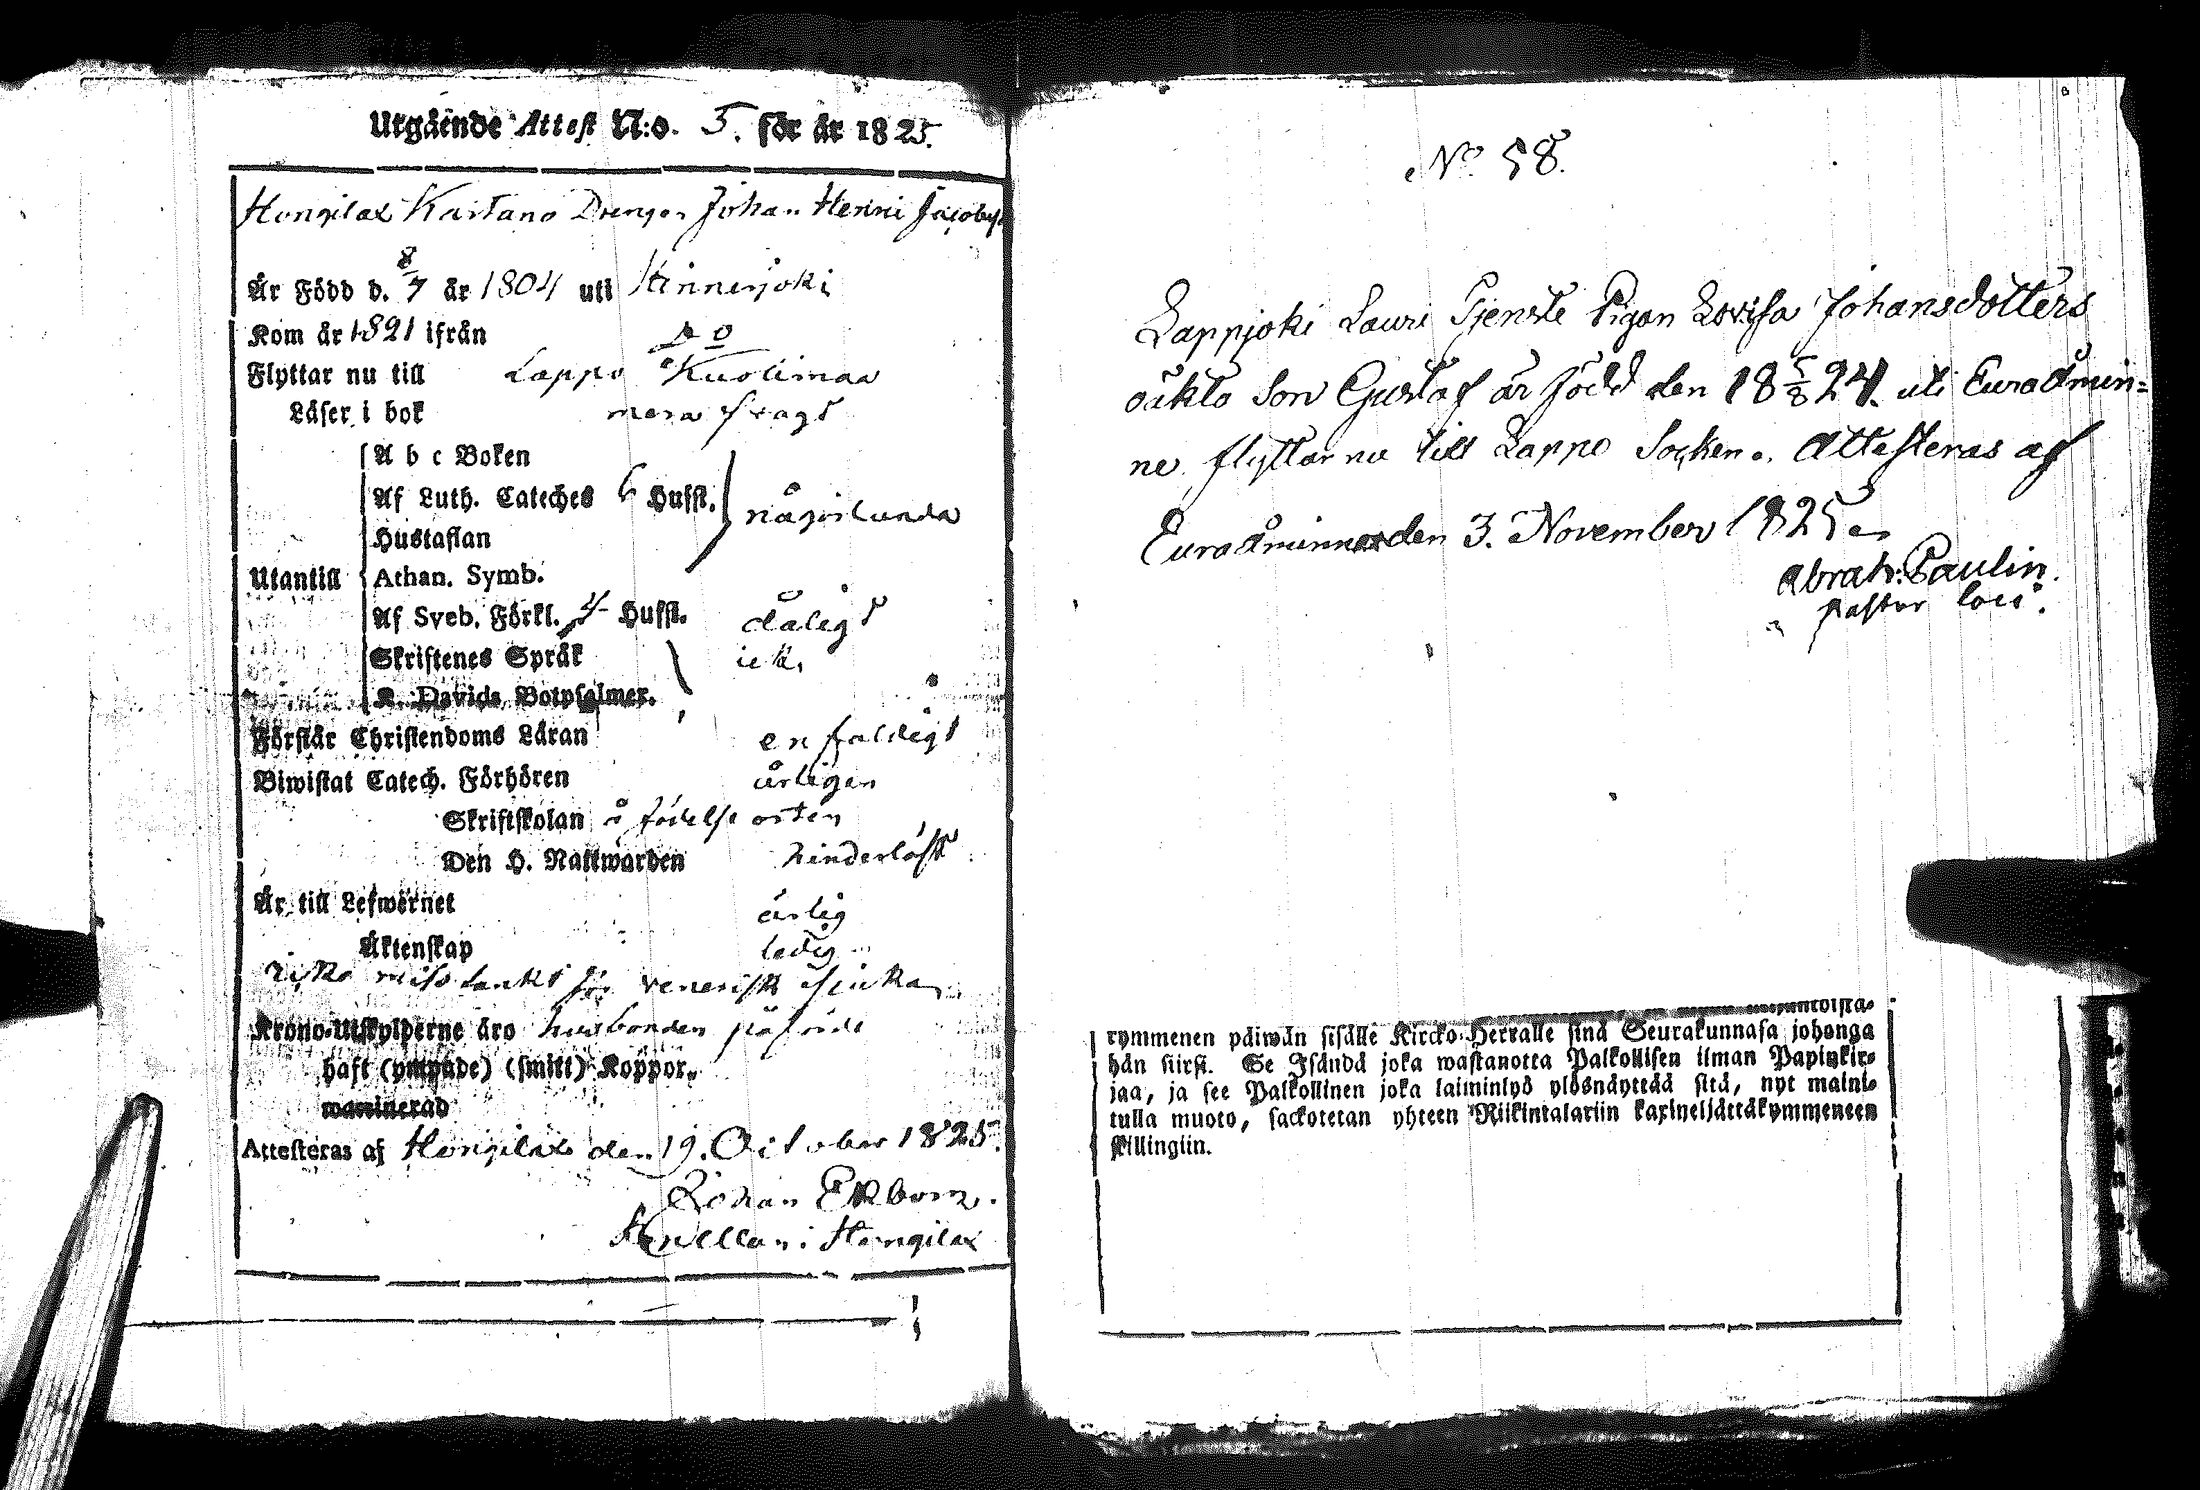 Utgående Attest N:o. 5. för år 1825.
Hongilax Kartano Drengen Johan Henric Jacobs
År Född d. 8/7 år 1804 uti Hinnerjoki
Kom år 1821 ifrån do
Flyttar nu till Lappo Kuolimaa
Läser i bok mera svagt
A b c Boken
Af Luth. Cateches 6 Hufst. någorlunda
Hustaflan
Utantill Athan. Symb.
Af Sveb. Förkl. 4 Hufst. dåligt
Skriftenes Språk icke
K. Davids Botpsalmer.
Förstår Christendoms Läran enfaldigt
Biwistat Catech. Förhören årligen
Skriftskolan å födelse orten
Den H. Nattwarden hinderlöst
Är till Lefwernet ärlig
Äktenskap ledig
icke misstänkt för venerisk siuka
Krono-Utskylderne äro husbonden påförde
haft (ympade) (smitt) Koppor.
waccinerad
Attesteras af Hongilax den 19. October 1825.
Johan Ekbom.
Capellan i Hongilax
No 58.
Lappjoki Lauri Tjenste Pigan Lovisa Johansdotters
oäkta Son Gustaf är född den 18 5/8 24. uti Euraåmin=
ne flyttar nu till Lappo Socken. Attesteras af
Euraåminne den 3. November 1825
Abrah: Paulin.
Pastor loci.
kymmenen päiwän sisälle Kircko-Herralle sinä Seurakunnasa johonga
hän siirsi. Se Isändä joka wastanotta Palkollisen ilman Papinkir-
jaa, ja see Palkollinen joka laiminlyö ylösnäyttää sitä, nyt maini-
tulla muoto, sackotetan yhteen Riikintalariin kaxineljättäkymmeneen
skillingiin.